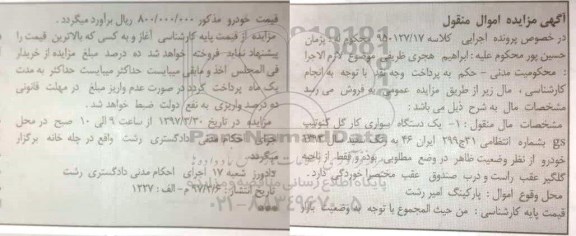 آگهی مزایده اموال منقول
در خصوص پرونده اجرایی کلاسه ۹۵۰۱۲۷/۱۷ محکوم له: پژمان
حسین پور محکوم علیه: ابراهیم هجری ظریفی موضوع لازم الاجرا
: محکومیت مدنی - حکم به پرداخت وجه نقد با توجه به انجام
کارشناسی، مال زیر از طریق مزایده عمومی به فروش می رسد
مشخصات مال به شرح ذیل می باشد:
مشخصات مال منقول: ۱- یک دستگاه سواری کار گل کتوتیپ
gs بشماره انتظامی ۳۱ج۲۹۹ ایران ۴۶ به رنگ سفید مدل
خودرو از نظر وضعیت ظاهر در وضع مطلوبی بوده و فقط از ناحیه
گلگیر عقب راست و درب صندوق عقب مختصرا خوردگی دارد.
محل وقوع اموال: پارکینگ امیر رشت
قیمت پایه کارشناسی: من حیث المجموع با توجه به وضعیت بازار
قیمت خودرو مذکور ۸۰۰/۰۰۰/۰۰۰ ریال برآورد میگردد.
مزایده از قیمت پایه کارشناسی آغاز و به کسی که بالاترین قیمت را
پیشنهاد نماید فروخته خواهد شد ده درصد مبلغ مزایده از خریدار
فی المجلس اخذ و مابقی میبایست حداکثر میبایست حداکثر به مدت
یک ماه پرداخت گردد در صورت عدم واریز مبلغ در مهلت قانونی
ده درصد واریزی به نفع دولت ضبط خواهد شد.
مزایده در تاریخ ۱۳۹۷/۳/۳۰ از ساعت ۹ الی ۱۰ صبح در محل
اجرای احکام مدنی دادگستری رشت واقع در جاده خانه برگزار
میگردد.
دادورز شعبه ۱۷ اجرای احکام مدنی دادگستری رشت
تاریخ انتشار: ۹۷/۳/۶ م - الف: ۱۲۲۷
ParsNamadData
پایگاه اطلاع رسانی مناقصه و مزایده
۰۲۱-۸۸۳۴۹۶۷۰-۵